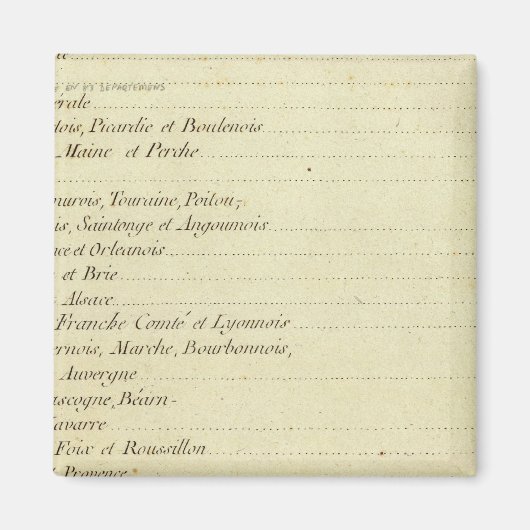 EN 83 DEPARTEMENS
érale
dois, Picardie et Boulenois
Maine et Perche
murois, Touraine, Poitou,
is, Saintonge et Angoumois
nce et Orleanois
et Brie
Alsace
Franche Comté et Lyonnois
ernois, Marche, Bourbonnois,
Auvergne
ascogne, Béarn-
Navarre
Foix et Roussillon
Provence